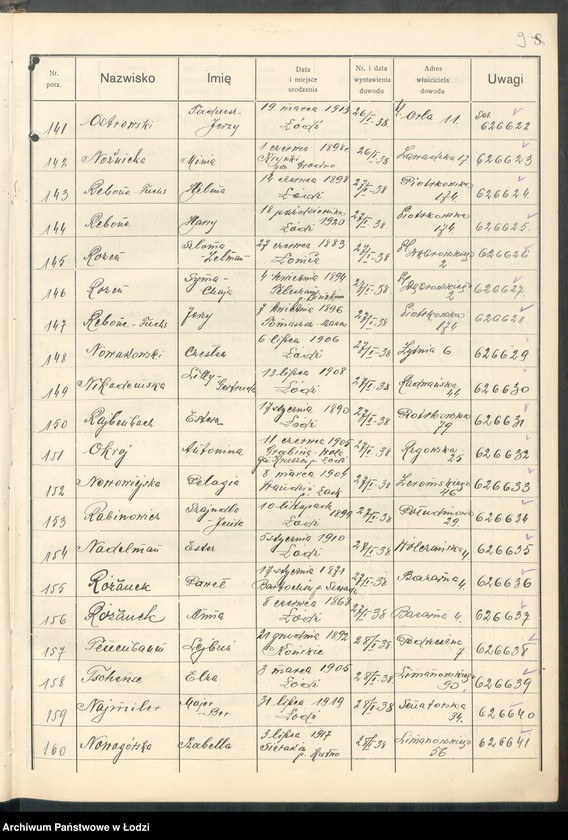 98
Nr. porz. Nazwisko Imię Data i miejsce urodzenia Nr. i data wystawienia dowodu Adres właściciela dowodu Uwagi
141 Ostrowski Tadeusz-Jerzy 19 marca 1913 Łódź 26/I-38 Orla 11. 626622
142 Nożnicka Minia 1 czerwca 1898 26/I-38 626623
143 Rebone-Fuchs 14 czerwca 1898 Łódź 27/I-38 Piotrkowska 174 626624
144 Rebone Harry 18 października 1920 Łódź 27/I-38 Piotrkowska 174 626625
145 Rozen Szloma Zelman 27 czerwca 1883 Łomża 27/I-38 2 626626
146 Rozen Syma-Chaja 4 kwietnia 1894 27/I-38 2 626627
147 Rebone-Fuchs Jerzy 7 kwietnia 1896 Tomaszów Mazow 27/I-38 Piotrkowska 174 626628
148 Nowakowski Czesław 6 lipca 1906 Łódź 27/I-38 Żytnia 6 626629
149 Nikodemska Lilly-Gertruda 13 lipca 1908 Łódź 27/I-38 44 626630
150 Rajbenbach Estera 17 stycznia 1890 Łódź 27/I-38 Piotrkowska 79 626631
151 Okrój Antonina 11 czerwca 1905 Grabina-Wola 27/I-38 Rzgowska 25 626632
152 Nowomiejska Pelagia 8 marca 1904 p. Łask 27/I-38 Żeromskiego 46 626633
153 Rabinowicz Szajndla 10 listopada 1899 Łódź 27/I-38 Południowa 29. 626634
154 Nadelman Ester 5 stycznia 1910 Łódź 27/I-38 Wólczańska 626635
155 Różanek Paweł 17 stycznia 1871 27/I-38 4. 626636
156 Różanek Anna 8 czerwca 1868 Łódź 27/I-38 4. 626637
157 Tenenbaum Lejbuś 21 grudnia 1892 Końskie 28/I-38 7 626638
158 Elza 3 marca 1905 Łódź 28/I-38 Limanowskiego 626639
159 Najmiler Majer-Ber 31 lipca 1919 Łódź 28/I-38 Senatorska 34. 626640
160 Nowogórska Izabella 3 lipca 1917 p. Kutno 28/I-38 Limanowskiego 56 626641
Archiwum Państwowe w Łodzi